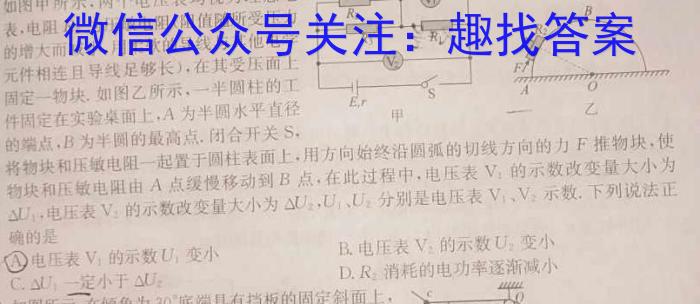 如图甲所示,两个电压表均视为理想电
微信公众号关注：趣找答案
表,电阻
的增大而
元件相连且导线足够长),在其受压面上
固定一物块. 如图乙所示,一半圆柱的工
件固定在实验桌面上,A 为半圆水平直径
的端点,B 为半圆的最高点. 闭合开关 S,
将物块和压敏电阻一起置于圆柱表面上,用方向始终沿圆弧的切线方向的力 F 推物块,使
物块和压敏电阻由 A 点缓慢移动到 B 点,在此过程中,电压表 V₁ 的示数改变量大小为
ΔU₁,电压表 V₂ 的示数改变量大小为 ΔU₂,U₁、U₂ 分别是电压表 V₁、V₂ 示数. 下列说法正
确的是
A. 电压表 V₁ 的示数 U₁ 变小
B. 电压表 V₂ 的示数 U₂ 变小
C. ΔU₁ 一定小于 ΔU₂
D. R₂ 消耗的电功率逐渐减小
V₂
E,r
S
甲
B
F
A
O
乙
30°底端具有挡板的固定斜面上,
c